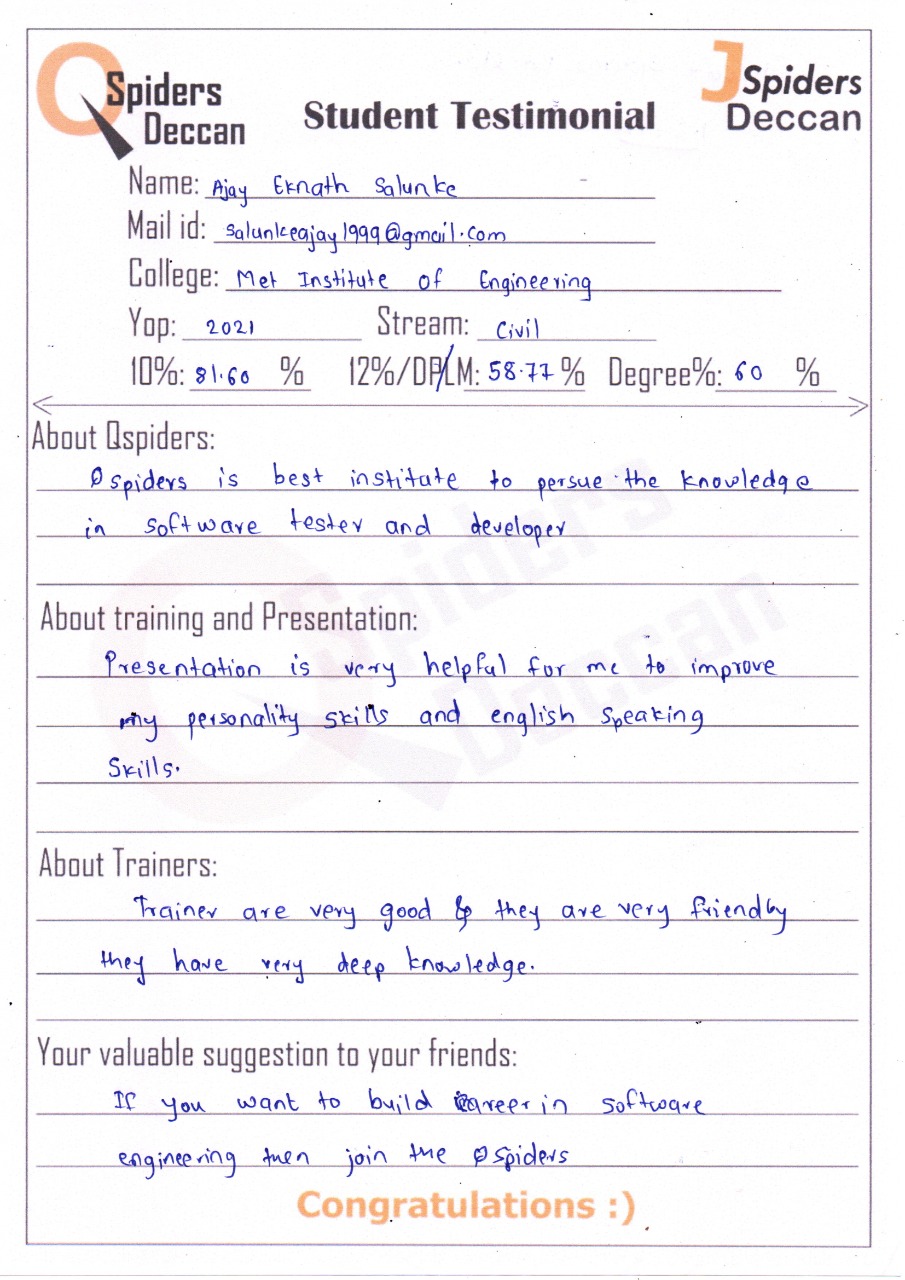 QSpiders
Deccan
Student Testimonial
JSpiders
Deccan
Name: Ajay Eknath Salunke
Mail id: salunkeajay1999@gmail.com
College: Met Institute of Engineering
Yop: 2021 Stream: Civil
10%: 81.60 % 12%/DPLM: 58.77 % Degree%: 60 %
About Qspiders:
Qspiders is best institute to persue the knowledge
in software tester and developer
About training and Presentation:
Presentation is very helpful for me to improve
my personality skills and english speaking
skills.
About Trainers:
Trainer are very good & they are very friendly
they have very deep knowledge.
Your valuable suggestion to your friends:
If you want to build career in software
engineering then join the Qspiders
Congratulations :)
QSpiders
Deccan